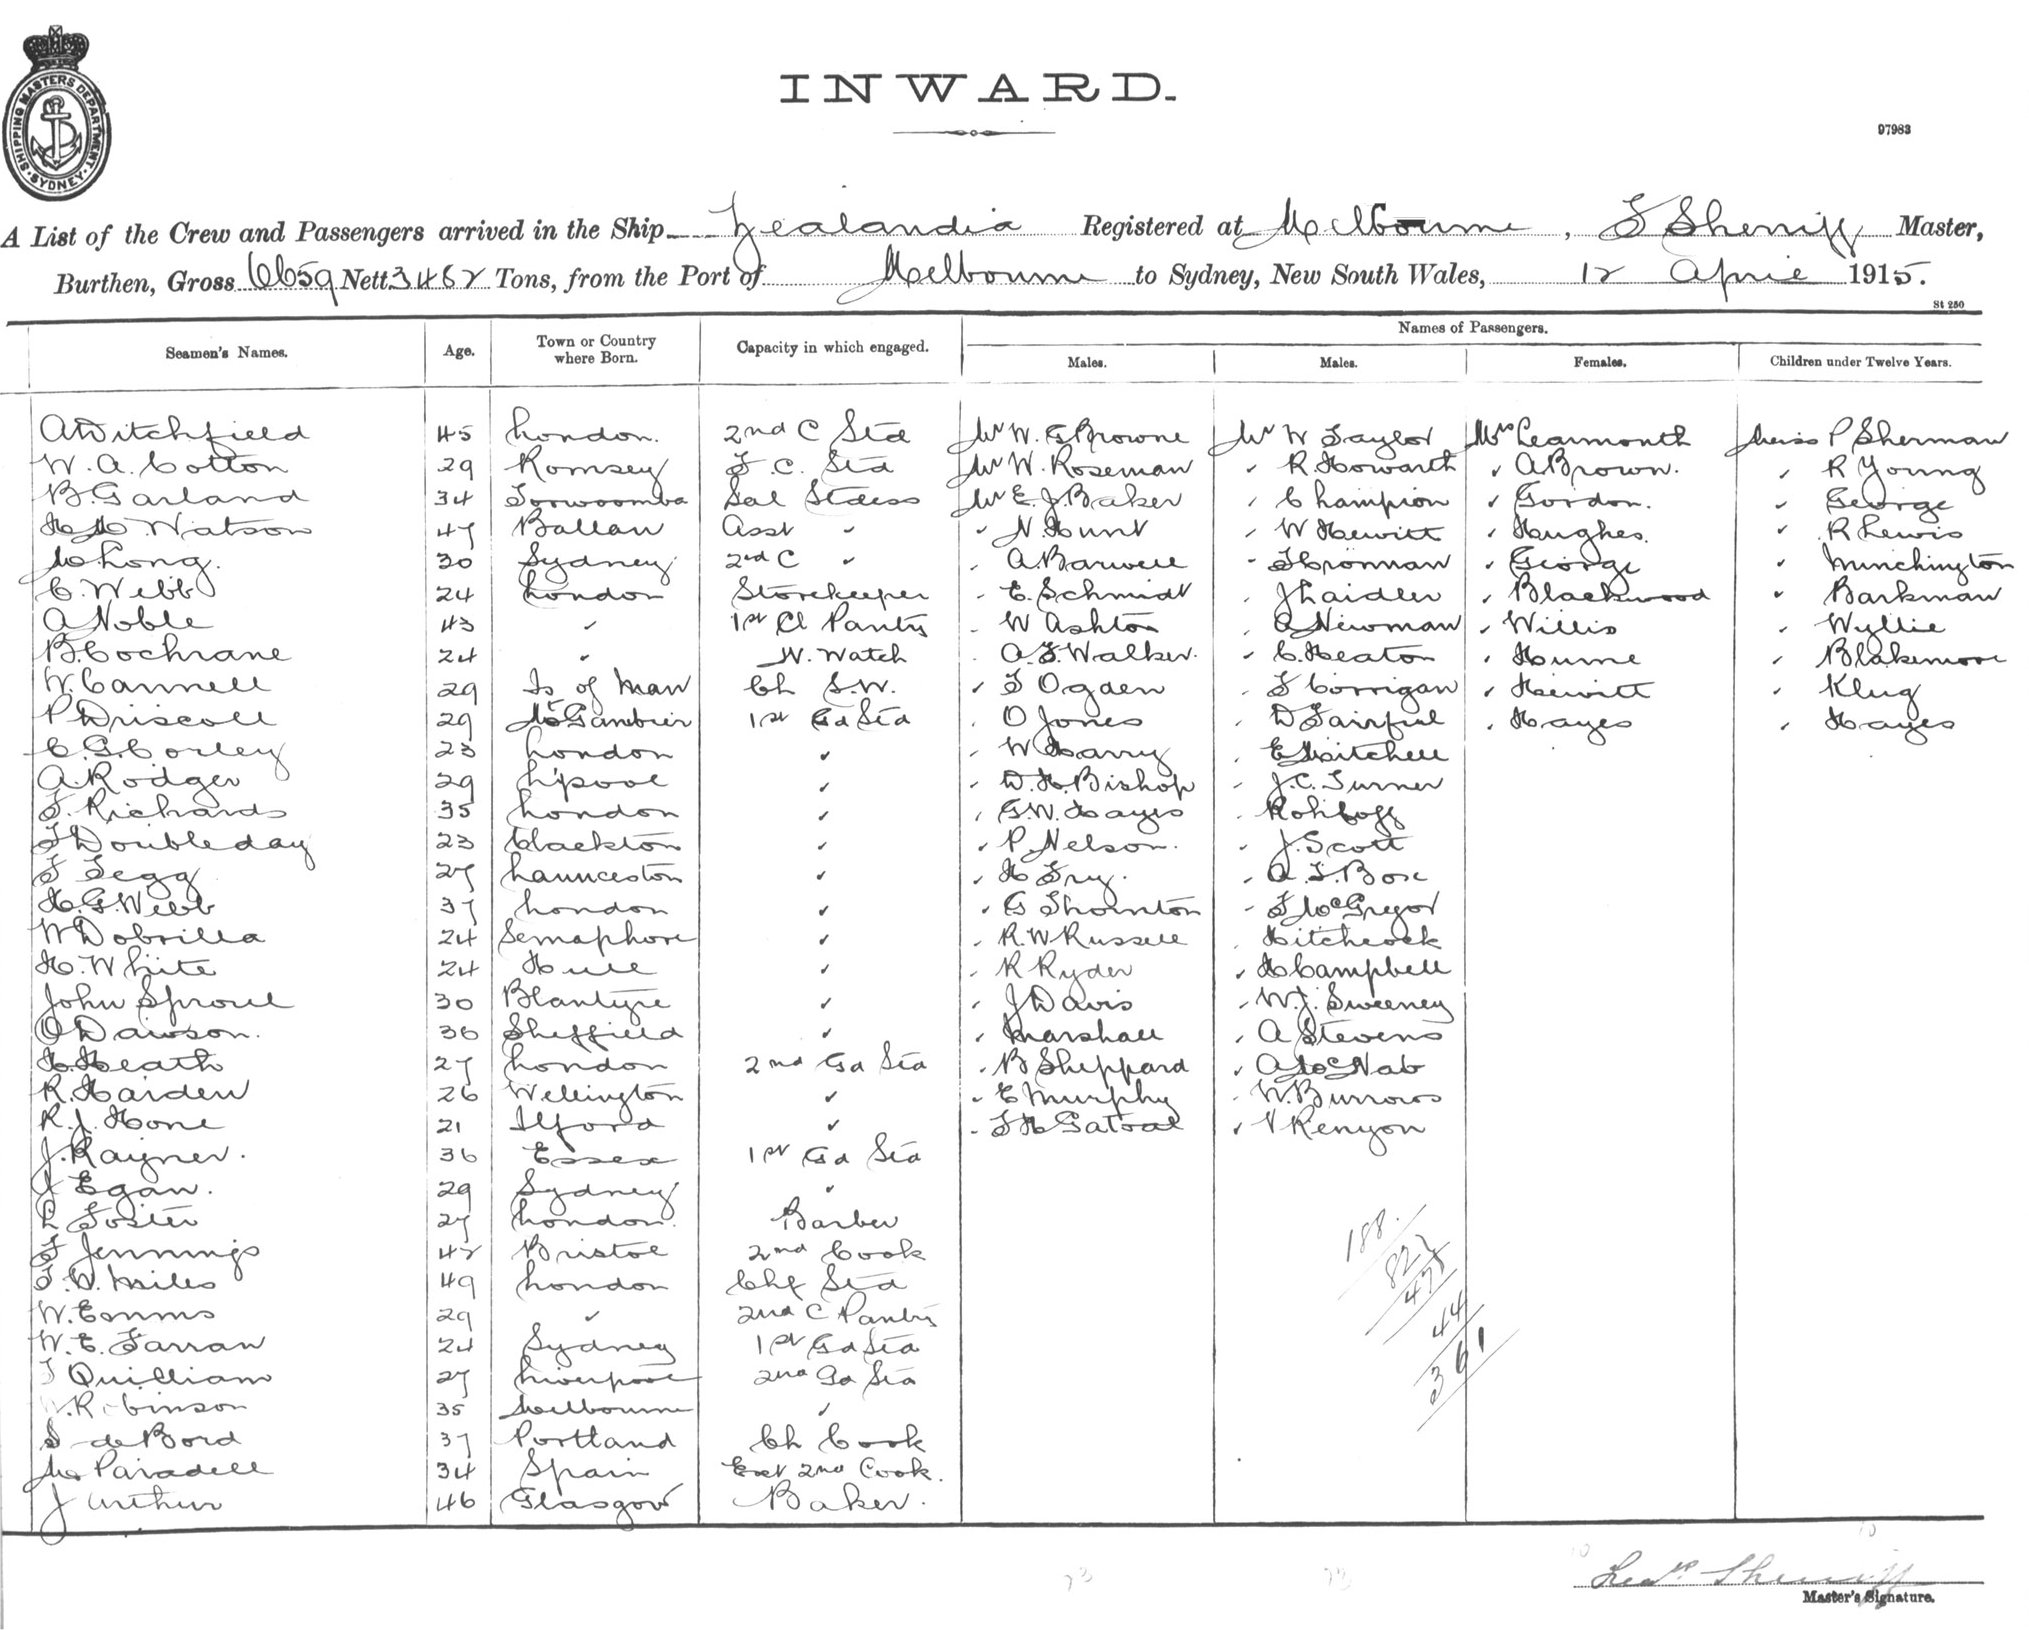 SHIPPING MASTERS DEPARTMENT. SYDNEY.
INWARD.
97983
A List of the Crew and Passengers arrived in the Ship Zealandia Registered at Melbourne, F Sherriff Master,
Burthen, Gross 6659 Nett 3482 Tons, from the Port of Melbourne to Sydney, New South Wales, 12 April 1915.
St 250
Names of Passengers.
Seamen's Names. Age. Town or Country where Born. Capacity in which engaged. Males. Males. Females. Children under Twelve Years.
A Ditchfield 45 London. 2nd C Std Mr W. G Browne Mr W Taylor Mrs Learmonth Miss P Sherman
W. A. Cotton 29 Romsey F. C. Std Mr W. Roseman " R Howarth " A Brown. " R Young
B. Garland 34 Toowoomba Sal Stdess Mr E. J. Baker " Champion " Gordon. " George
H M Watson 47 Ballan Asst " " N. Hunt " W Hewitt " Hughes. " R Lewis
M Long. 30 Sydney 2nd C " " A. Barwell " " George " Minchington
C. Webb 24 London Storekeeper " E. Schmidt " J Laidler " Blackwood " Barkman
A Noble 43 " 1st Cl Pantry " W Ashton " A Newman " Willis " Wyllie
B. Cochrane 24 " N. Watch " A. F. Walker. " C. Heaton " Hume " Blakemore
W. Cannell 29 Is of Man Ch S.W. " F Ogden " F Corrigan " Hewitt " Klug
P Driscoll 29 Mt Gambier 1st Gd Std " O Jones " D Fairful " Hayes " Hayes
C. G. Corley 23 London " " W Harry " E Mitchell
A. Rodger 29 L'pool " " D. H. Bishop " J. C. Turner
F. Richards 35 London " " G. W. Hayes " Rohloff
F Doubleday 23 Clackton " " P. Nelson. " J. Scott
F Tegg 27 Launceston " " H Fry. " A. F. Box
H. G. Webb 37 London " " G Thornton " F McGregor
W Dobrilla 24 Semaphore " " R. W Russell " Hitchcock
H. White 24 Hull " " R Ryder " H Campbell
John Sproul 30 Blantyre " " J Davis " W. J. Sweeney
O Dawson. 36 Sheffield " " Marshall " A Stevens
H. Heath 27 London 2nd Gd Std " B Sheppard " A McNab
R. Haiden 26 Wellington " " E Murphy " W. Burrows
R. J. Hone 21 Ilford " " F H " V Kenyon
J. Rayner. 36 Essex 1st Gd Std
J Egan. 29 Sydney "
L Foster 27 London. Barber
F Jennings 42 Bristol 2nd Cook
F. W. Miles 49 London Chf Std
W. Emms 29 " 2nd C Pantry
W. E. Farran 24 Sydney 1st Gd Std
T Quilliam 27 Liverpool 2nd Gd Std
W. Robinson 35 Melbourne "
S de Bord 37 Portland Ch Cook
M Paradell 34 Spain Ext 2nd Cook.
J Arthur 46 Glasgow Baker.
188.
82
47
44
361
23 23 10 10
Sherriff
Master's Signature.